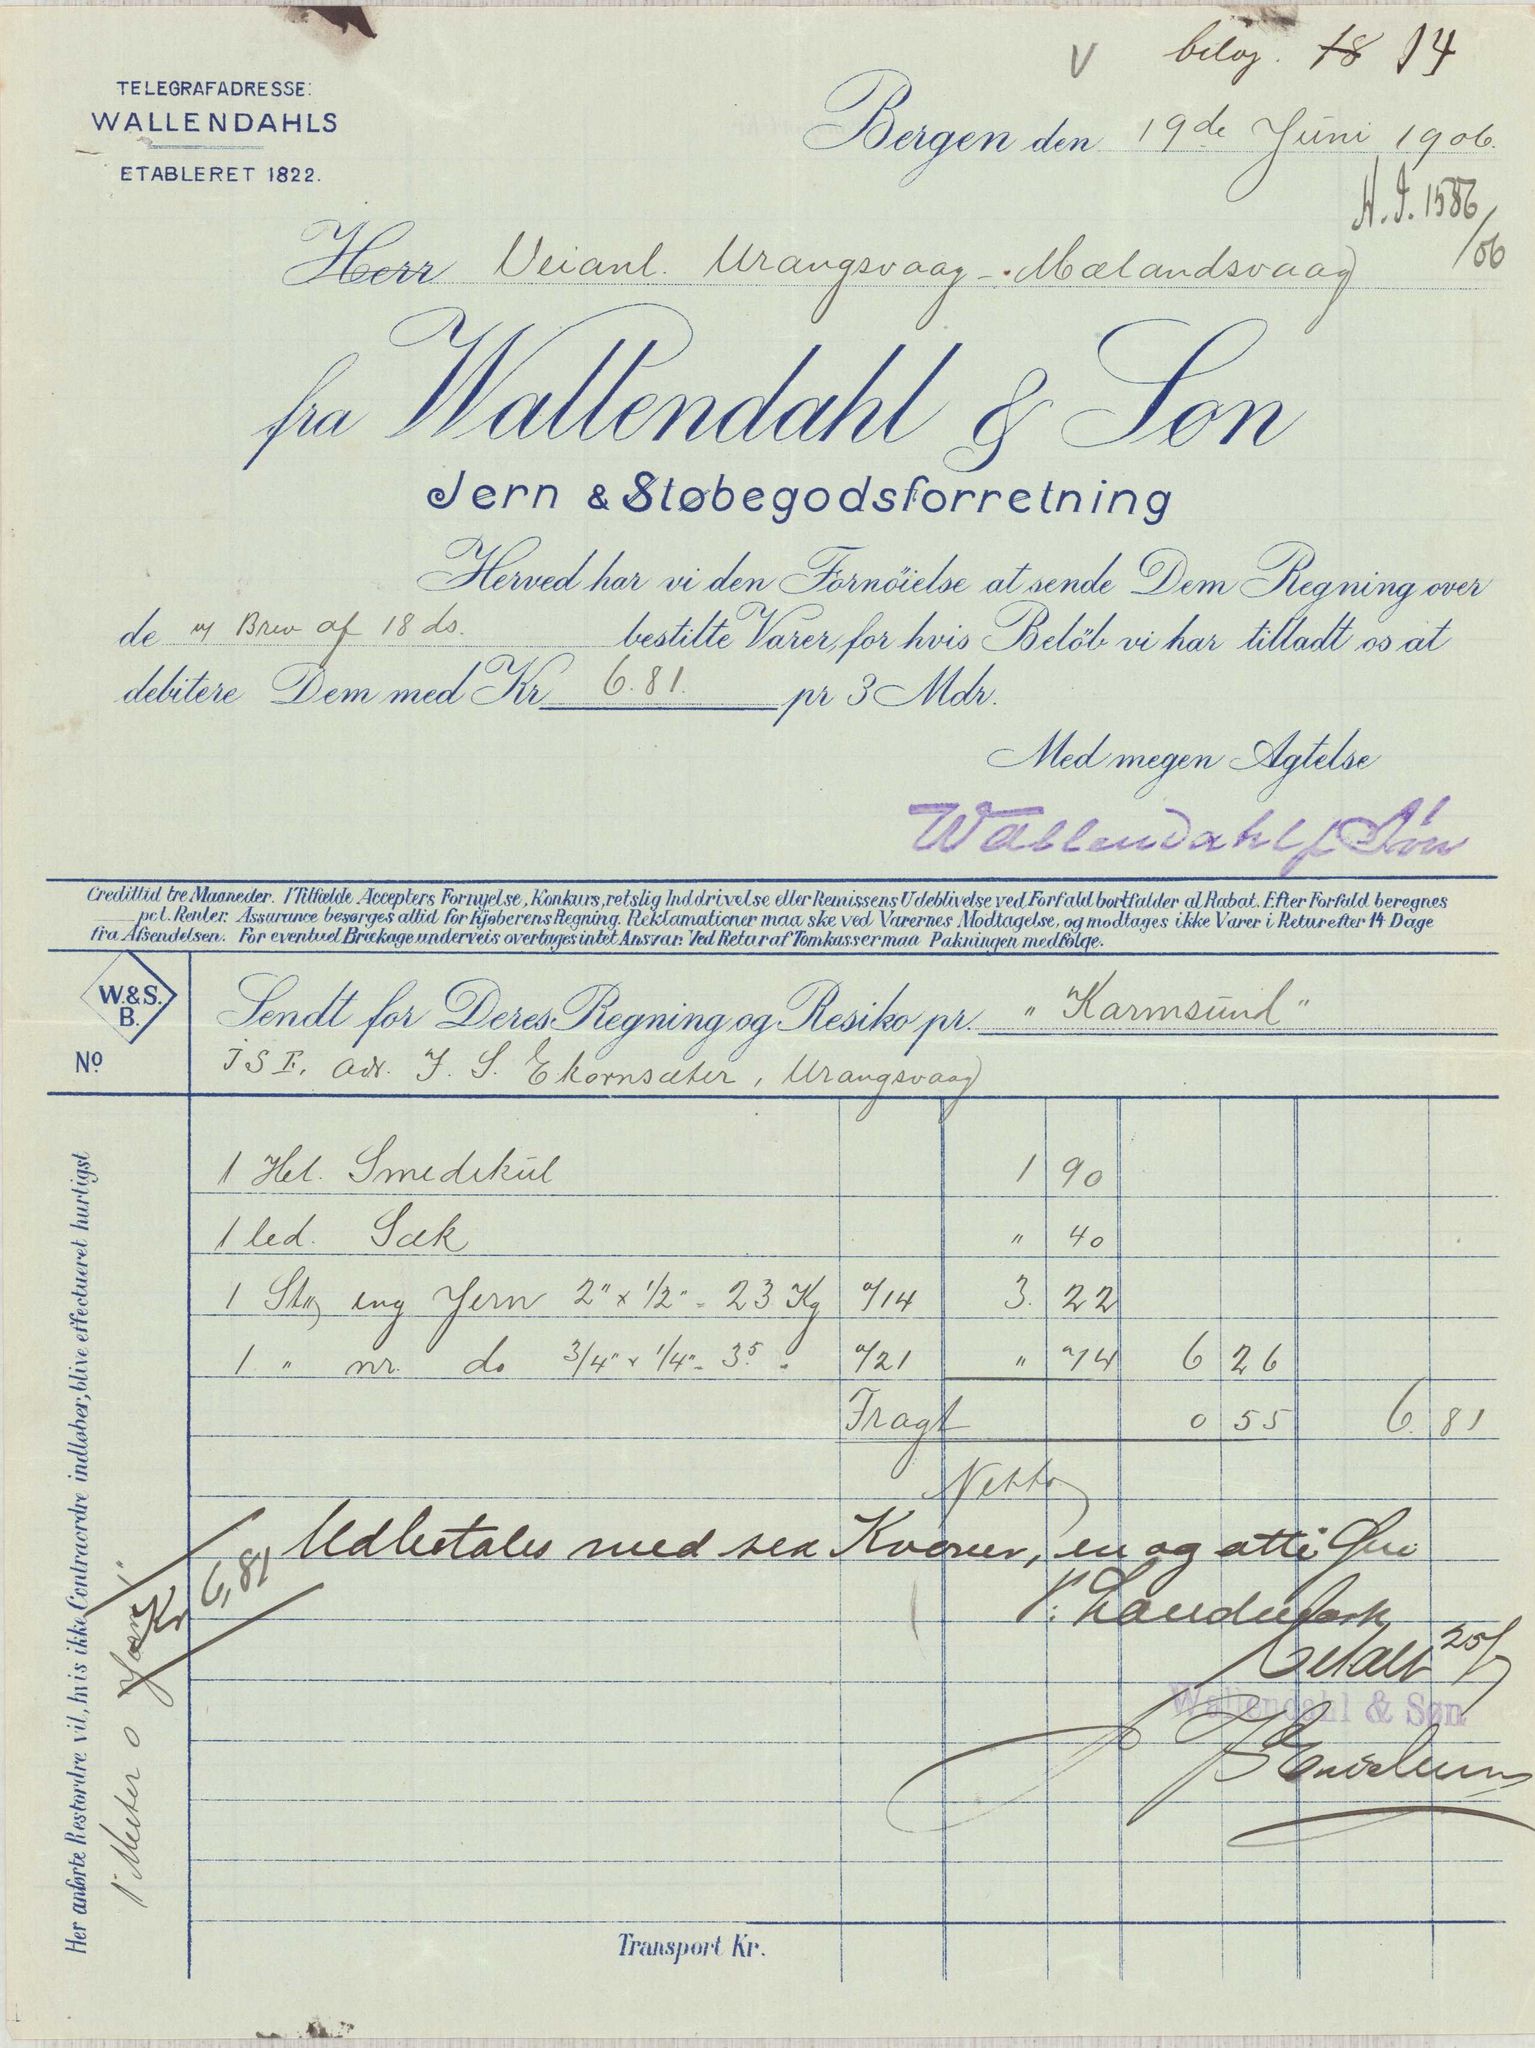 bilag. 18 14
TELEGRAFADRESSE:
WALLENDAHLS
ETABLERET 1822.
Bergen den 19de Juni 1906.
H. J. 1586/06
Herr Veianl. Urangsvaag - Mælandsvaag
fra Wallendahl & Søn
Jern & Støbegodsforretning
Herved har vi den Fornöielse at sende Dem Regning over
de Brev af 18 ds. bestilte Varer, for hvis Belöb vi har tilladt os at
debitere Dem med Kr 6.81. pr 3 Mdr.
Med megen Agtelse
Wallendahl & Søn
Credittid tre Maaneder. I Tilfælde Accepters Fornyelse, Konkurs, retslig Inddrivelse eller Remissens Udeblivelse ved Forfald bortfalder al Rabat. Efter Forfald beregnes
pct. Renter. Assurance besørges altid for Kjøberens Regning. Reklamationer maa ske ved Varernes Modtagelse, og modtages ikke Varer i Retur efter 14 Dage
fra Afsendelsen. For eventuel Brækage underveis overtages intet Ansvar. Ved Retur af Tomkasser maa Pakningen medfølge.
W. & S.
B.
Sendt for Deres Regning og Resiko pr. "Karmsund"
No
J S E, adr. J. S. Ekornsæter, Urangsvaag
1 Hel. Smedekul 1 90
1 led. Sæk " 40
1 Stg eng Jern 2" x 1/2" - 23 Kg a/14 3. 22
1 " nr. do 3/4" x 1/4" - 3.5 " a/21 " 74 6 26
Fragt 0 55 6. 81
Netto
Kr 6,81
Udbetales med sex Kroner, en og otti Øre
betalt 25/7
Wallendahl & Søn
Her anførte Restordre vil, hvis ikke Contraordre indløber, blive effectueret hurtigst
Transport Kr.